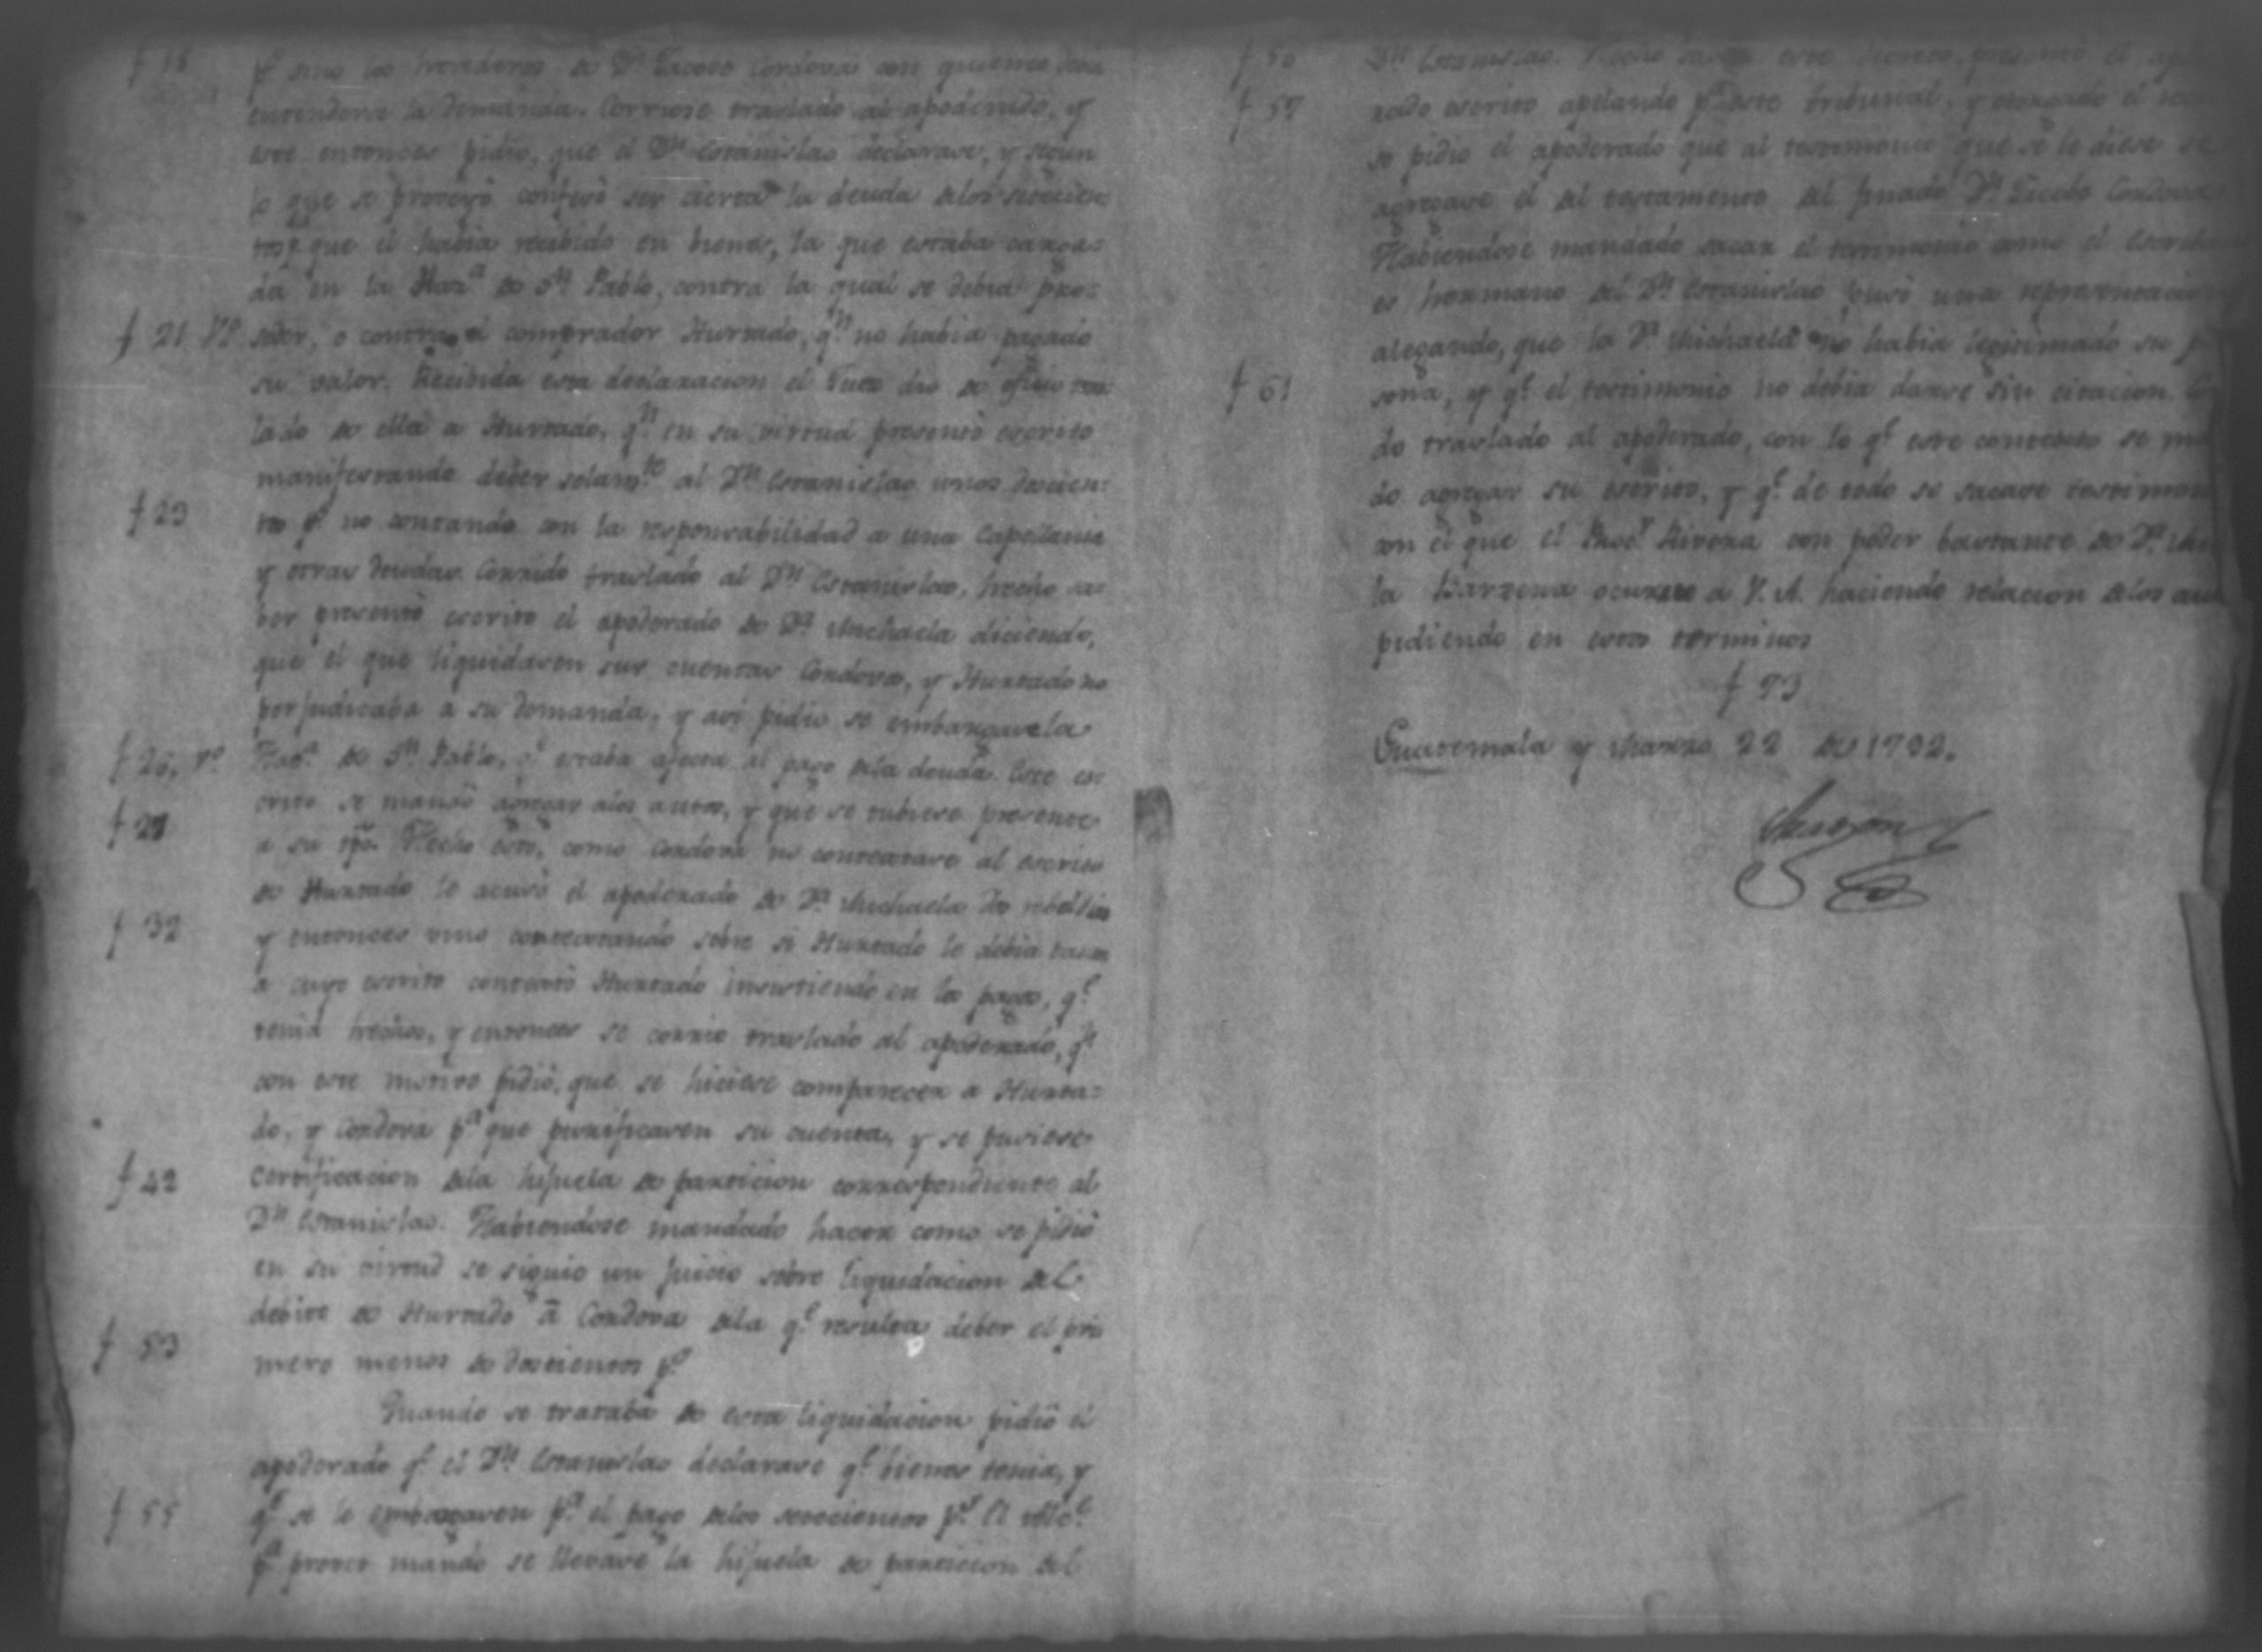 f 18
pr. sino los herederos de Dn. Jacobo Cordova con quienes debia
entenderse la demanda. Corriose traslado al apoderado, y
este entonces pidio, que el Dn. Estanislao declarase, y segun
lo que se proveyó confesó ser cierta la deuda delos setecien
tos ps. que el habia recibido en bienes, la que estaba carga=
da en la Hazda. de Sn. Pablo, contra la qual se debia pro=
f 21 vo.
ceder, o contra el comprador Hurtado, qn. no habia pagado
su valor. Recibida esta declaracion el Juez dio de oficio tras
lado de ella a Hurtado, qn. en su virtud presentó escrito
manifestando deber solamte. al Dn. Estanislao unos docien=
f 23
tos ps. no contando con la responsabilidad a una Capellania
y otras deudas. Corrido traslado al Dn. Estanislao, hecho sa=
ber presentó escrito el apoderado de Da. Michaela diciendo,
que el que liquidasen sus cuentas Cordova, y Hurtado no
perjudicaba a su demanda, y asi pidio se embargase la
f 26, vo.
Hazda. de Sn. Pablo, qe. estaba afecta al pago dela deuda. Este es
f 27
crito se mandó agregar alos autos, y que se tubiese presente
a su tpo. Hecho esto, como Cordova no contestase al escrito
de Hurtado le acusó el apoderado de Da. Michaela de rebeldia
f 32
y entonces vino contestando sobre si Hurtado le debia
a cuyo escrito contestó Hurtado insistiendo en los pagos, qe.
tenia hechos, y entonces se corrio traslado al apoderado, qn.
con este motivo pidió, que se hiciese comparecer a Hurta=
do, y Cordova pa. que purificasen su cuenta, y se pusiese
f 42
certificacion dela hijuela de particion correspondiente al
Dn. Estanislao. Habiendose mandado hacer como se pidió
en su virtud se siguio un juicio sobre liquidacion del
debito de Hurtado a Cordova dela qe. resulta deber el pri
f 53
mero menos de docientos ps.
Quando se trataba de esta liquidacion pidió el
apoderado qe. el Dn. Estanislao declarase qe. bienes tenia, y
f 55
qe. se le embargasen pa. el pago delos setecientos ps. El Alce.
pa. proveer mandó se llevase la hijuela de particion del
f 56
Dn. Estanislao. Hecho saber este decreto, presentó el apo
f 57
rado escrito apelando pa. este tribunal, y otorgado el
se pidio el apoderado que al testimonio que se le diese se
agregase el del testamento del finado Dn. Jacobo Cordova
Habiendose mandado sacar el testimonio como el escriba
es hermano del Dn. Estanislao puso una representacion
alegando, que la Da. Michaela no habia legitimado su p
f 61
sona, y qe. el testimonio no debia darse sin citacion.
do traslado al apoderado, con lo qe. este contesto se man
dó agregar su escrito, y qe. de todo se sacase testimon
con el que el Procr. Rivera con poder bastante de Da. Mi
la Barzena ocurre a V. A. haciendo relacion delos au
pidiendo en estos terminos
f 73
Guatemala y Marzo 22 de 1792.